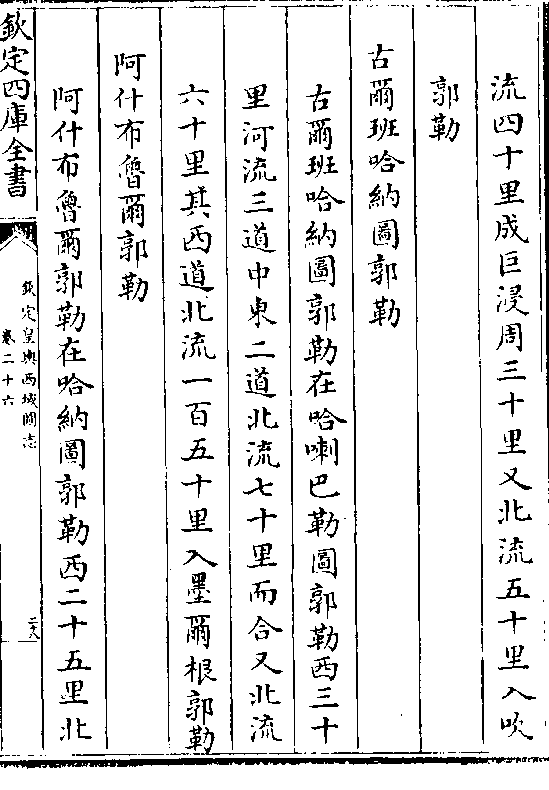 流四十里成巨浸周三十里又北流五十里入吹
郭勒
古爾班哈納圖郭勒
古爾班哈納圖郭勒在哈喇巴勒圖郭勒西三十
里河流三道中東二道北流七十里而合又北流
六十里其西道北流一百五十里入墨爾根郭勒
阿什布魯爾郭勒
阿什布魯爾郭勒在哈納圖郭勒西二十五里北
欽定四庫全書
欽定皇輿西域圖志
卷二十六
二十八